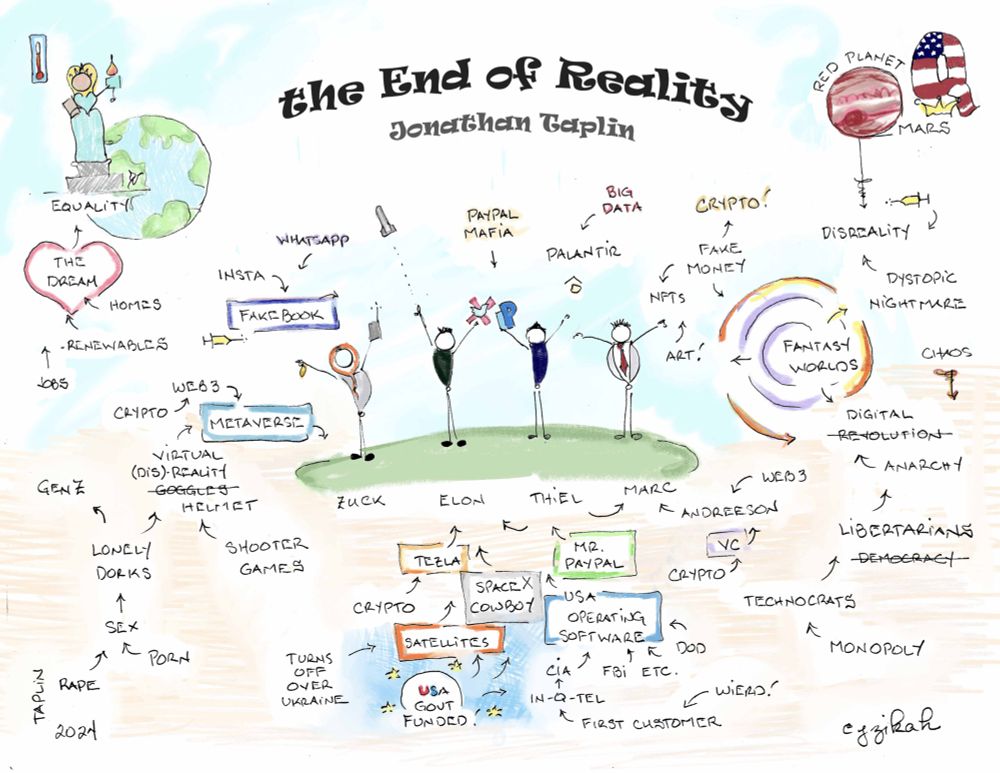 the End of Reality
Jonathan Taplin
RED PLANET
MARS
EQUALITY
THE
DREAM
HOMES
RENEWABLES
JOBS
WHATSAPP
INSTA
FAKEBOOK
PAYPAL
MAFIA
BIG
DATA
PALANTIR
CRYPTO!
FAKE
MONEY
NFTS
ART!
DISREALITY
DYSTOPIC
NIGHTMARE
FANTASY
WORLDS
CHAOS
P
WEB3
CRYPTO
METAVERSE
VIRTUAL
(DIS)-REALITY
GOGGLES
HELMET
GENZ
LONELY
DORKS
SHOOTER
GAMES
SEX
PORN
RAPE
TAPLIN
2024
ZUCK
ELON
THIEL
MARC
ANDREESON
WEB3
VC
CRYPTO
DIGITAL
REVOLUTION
ANARCHY
LIBERTARIANS
DEMOCRACY
TECHNOCRATS
MONOPOLY
TEZLA
SPACEX
COWBOY
MR.
PAYPAL
CRYPTO
SATELLITES
USA
OPERATING
SOFTWARE
DOD
TURNS
OFF
OVER
UKRAINE
USA
GOVT
FUNDED!
CIA
FBI ETC.
IN-Q-TEL
WIERD!
FIRST CUSTOMER
cyzikah